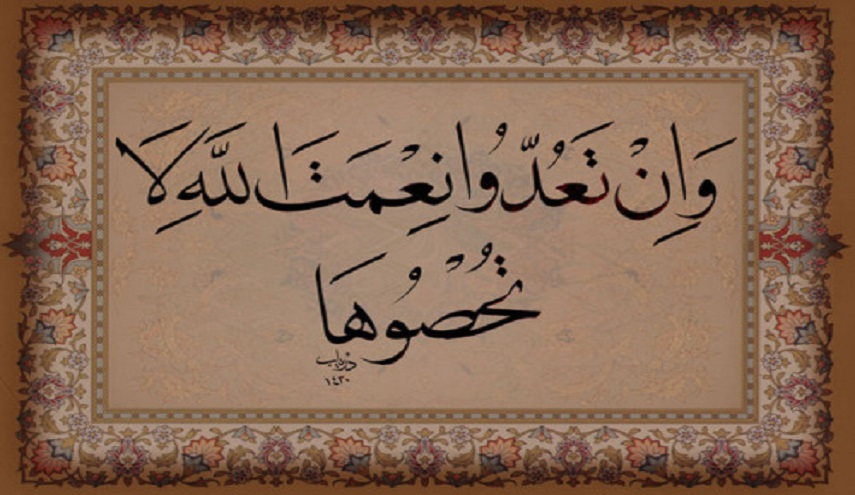 وَاِنْ تَعُدُّوا نِعْمَتَ اللّٰهِ لَا
تُحْصُوهَا
١٤٣٠